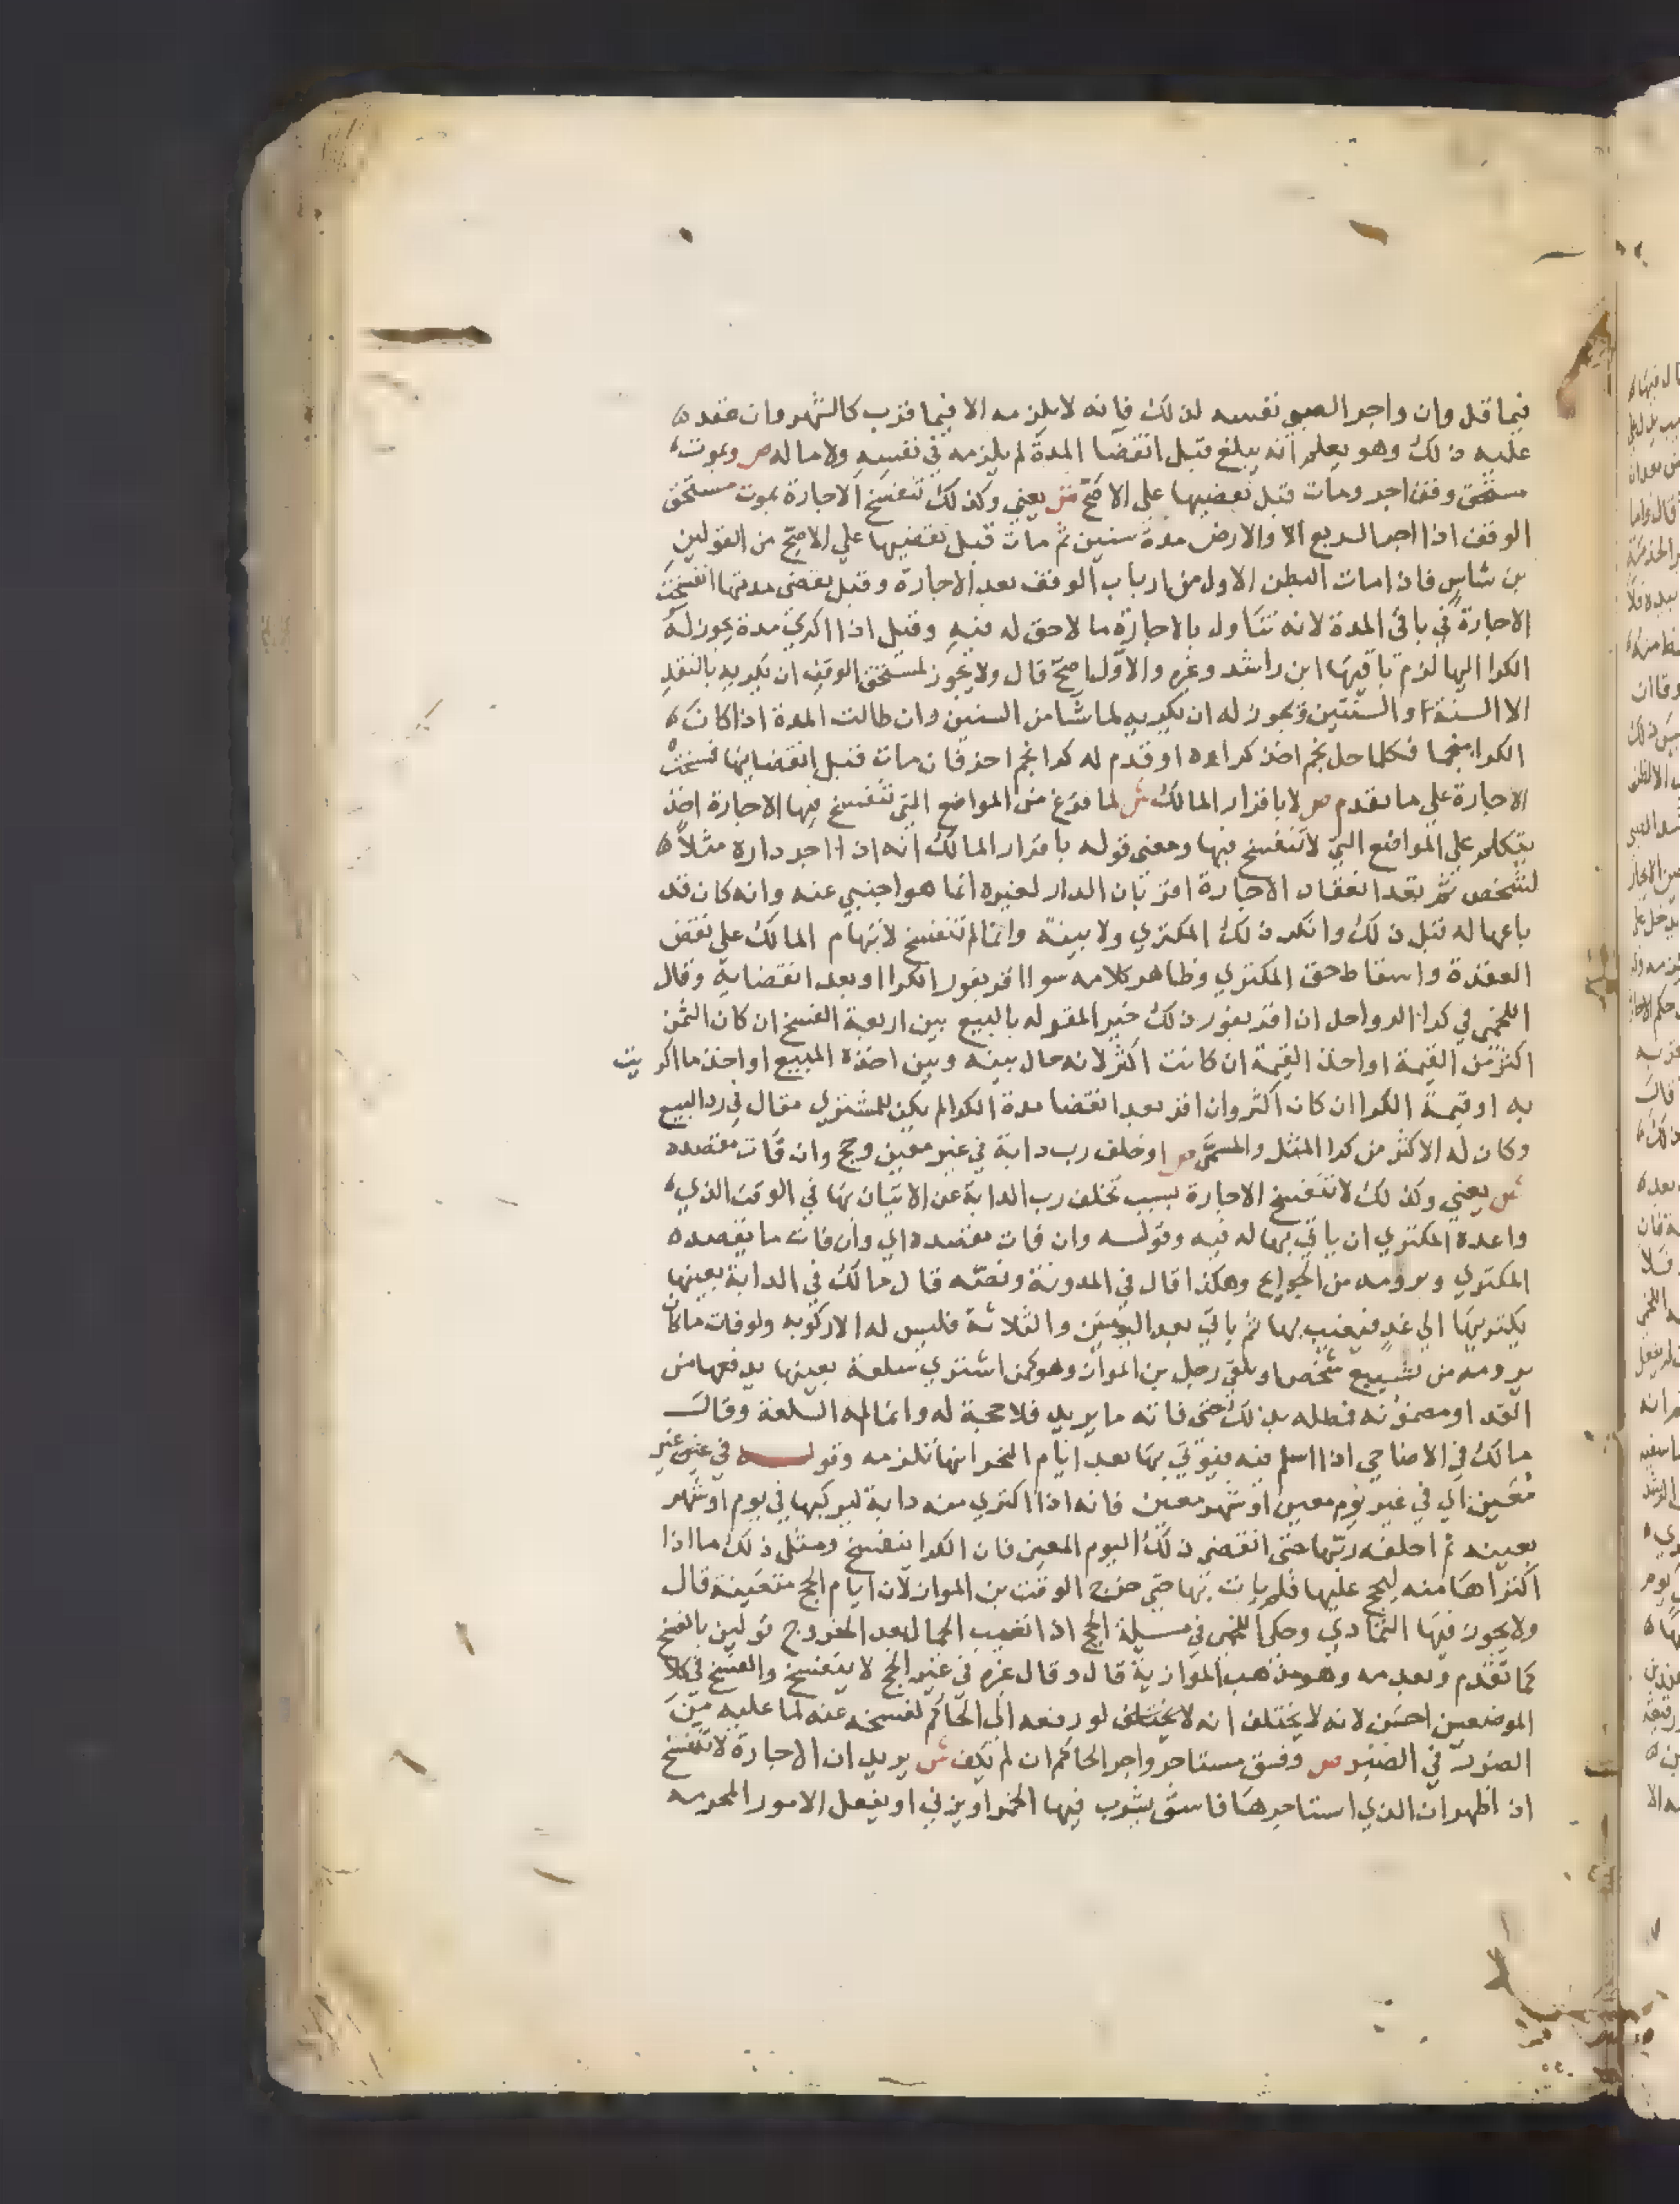 فيما قل وان واجر الصبي نفسه لذلك فانه لا يلزمه الا فيما قرب كالشهر وان عقده
عليه ذلك وهو يعلم انه يبلغ قبل انقضا المدة لم يلزمه في نفسه ولا ماله ص وبموت
مستحق وقف اجر ومات قبل تقضيها علي الاصح ش يعني وكذلك تنفسخ الاجارة بموت مستحق
الوقف اذا اجر الربع او الارض مدة سنين ثم مات قبل تقضيها علي الاصح من القولين
بن شاس فاذا مات البطن الاول من ارباب الوقف بعد الاجارة وقبل تقضي مدتها انفسخت
الاجارة في باقي المدة لانه تناول بالاجارة ما لا حق له فيه وقيل اذا اكري مدة يجوز له
الكرا اليها لزم باقيها ابن راشد وغيره والاول اصح قال ولا يجوز لمستحق الوقف ان يكريه بالنقد
الا السنة او السنتين ويجوز له ان يكريه لما شا من السنين وان طالت المدة اذا كان
الكرا منجما فكلما حل نجم اخذ كراءه او قدم له كرا نجم اخر فان مات قبل انقضايها فسخت
الاجارة علي ما تقدم ص لا باقرار المالك ش لما فرغ من المواضع التي تنفسخ فيها الاجارة اخذ
يتكلم علي المواضع التي لا تنفسخ فيها ومعني قوله باقرار المالك انه اذا اجر داره مثلا
لشخص ثم بعد انعقاد الاجارة اقر بان الدار لغيره انما هو اجنبي عنه وانه كان قد
باعها له قبل ذلك وانكر ذلك المكتري ولا بينة وانما لم تنفسخ لاتهام المالك علي نقض
العقدة واسقاط حق المكتري وظاهر كلامه سوا اقر بفور الكرا او بعد انقضايه وقال
اللخمي في كرا الرواحل ان اقر بفور ذلك خير المقر له بالبيع بين اربعة الفسخ ان كان الثمن
اكثر من القيمة او اخذ القيمة ان كانت اكثر لانه حال بينه وبين اخذه المبيع او اخذ ما اكريت
به او قيمة الكرا ان كان اكثر وان اقر بعد انقضا مدة الكرا لم يكن للمشتري مقال في رد البيع
وكان له الاكثر من كرا المثل والمسمي ص او خلف رب دابة في غير معين وحج وان فات مقصده
ش يعني وكذلك لا تنفسخ الاجارة بسبب تخلف رب الدابة عن الاتيان بها في الوقت الذي
واعده المكتري ان ياتي بها له فيه وقوله وان فات مقصده اي وان فات ما يقصده
المكتري ويرومه من الحوايج وهكذا قال في المدونة ونصه قال مالك في الدابة بعينها
يكتريها الي غد فيغيب بها ثم ياتي بعد اليومين والثلاثة فليس له الا ركوبه ولو فات ما كان
يرومه من تشييع شخص او تلقي رجل بن المواز وهو كمن اشتري سلعة بعينها يدفعها من
الغد او مضمونه فمطله بذلك حتي فاته ما يريد فلا حجة له وانما له السلعة وقال
مالك في الاضاحي اذا اسلم فيه فيوتي بها بعد ايام النحر انها تلزمه وقوله في غير
معين اي في غير يوم معين او شهر معين فانه اذا اكتري منه دابة ليركبها في يوم او شهر
بعينه ثم اخلفه ربها حتي انقضي ذلك اليوم المعين فان الكرا ينفسخ ومثل ذلك ما اذا
اكتراها منه ليحج عليها فلم يات بها حتي خرج الوقت بن المواز لان ايام الحج متعينة قال
ولا يجوز فيها التمادي وحكي اللخمي في مسيلة الحج اذا تغيب الجمال بعد الخروج قولين بالفسخ
كما تقدم وبعدمه وهو مذهب الموازية قال وقال غيره في غير الحج لا ينفسخ والفسخ في كلا
الموضعين احسن لانه لا يختلف انه لا يختلف لو رفعه الي الحاكم لفسخه عنه لما عليه من
الضرر في الصبر ص وفسق مستاجر واجر الحاكم ان لم يكف ش يريد ان الاجارة لا تنفسخ
اذ اظهر ان الذي استاجرها فاسق يشرب فيها الخمر او يزني او يفعل الامور المحرمه